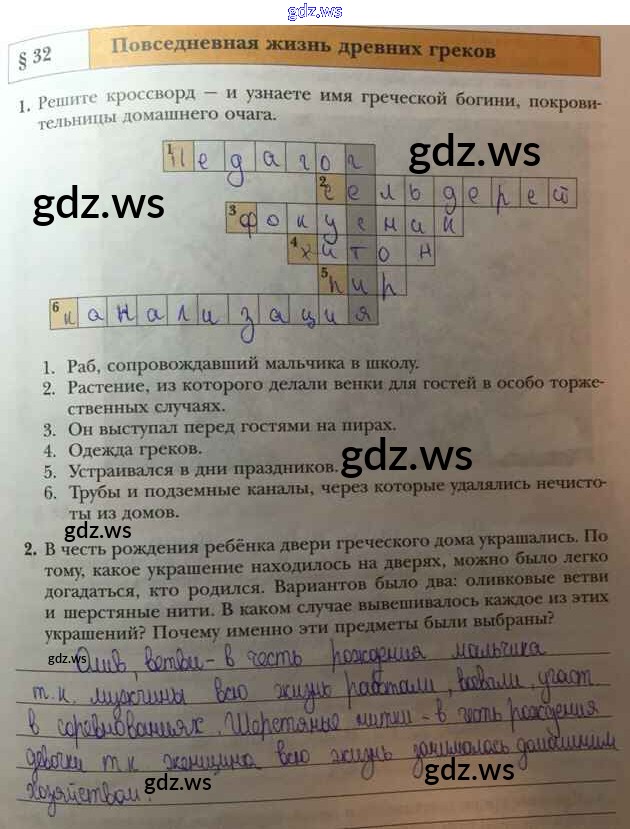 gdz.ws
§ 32
Повседневная жизнь древних греков
1. Решите кроссворд — и узнаете имя греческой богини, покрови-
тельницы домашнего очага.
gdz.ws
1 Педагог
gdz.ws
2 сельдерей
3 фокусник
4 хитон
5 пир
6 канализация
1. Раб, сопровождавший мальчика в школу.
2. Растение, из которого делали венки для гостей в особо торже-
ственных случаях.
3. Он выступал перед гостями на пирах.
4. Одежда греков.
gdz.ws
5. Устраивался в дни праздников.
6. Трубы и подземные каналы, через которые удалялись нечисто-
ты из домов.
gdz.ws
2. В честь рождения ребёнка двери греческого дома украшались. По
тому, какое украшение находилось на дверях, можно было легко
догадаться, кто родился. Вариантов было два: оливковые ветви
и шерстяные нити. В каком случае вывешивалось каждое из этих
украшений? Почему именно эти предметы были выбраны?
gdz.ws
Олив. ветви - в честь рождения мальчика
т.к. мужчины всю жизнь работали, воевали, участ
в соревнованиях. Шерстяные нитки - в честь рождения
девочки т.к женщина всю жизнь занималась домашним
хозяйством.
gdz.ws
gdz.ws